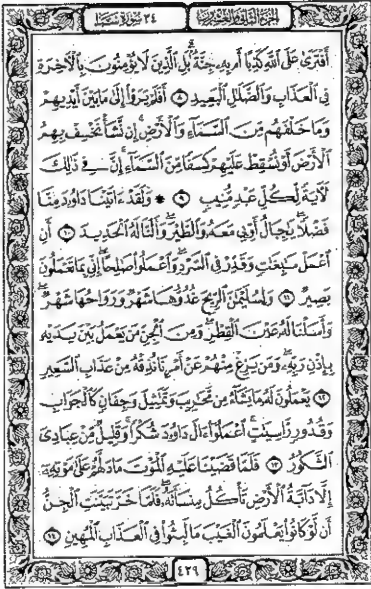 الجزء الثاني والعشرون
٣٤ سورة سبأ
أَفْتَرَىٰ عَلَى ٱللَّهِ كَذِبًا أَم بِهِۦ جِنَّةٌۢ ۗ بَلِ ٱلَّذِينَ لَا يُؤْمِنُونَ بِٱلْـَٔاخِرَةِ
فِى ٱلْعَذَابِ وَٱلضَّلَـٰلِ ٱلْبَعِيدِ ٨ أَفَلَمْ يَرَوْا۟ إِلَىٰ مَا بَيْنَ أَيْدِيهِمْ
وَمَا خَلْفَهُم مِّنَ ٱلسَّمَآءِ وَٱلْأَرْضِ ۚ إِن نَّشَأْ نَخْسِفْ بِهِمُ
ٱلْأَرْضَ أَوْ نُسْقِطْ عَلَيْهِمْ كِسَفًا مِّنَ ٱلسَّمَآءِ ۚ إِنَّ فِى ذَٰلِكَ
لَـَٔايَةً لِّكُلِّ عَبْدٍ مُّنِيبٍ ٩ ۞ وَلَقَدْ ءَاتَيْنَا دَاوُۥدَ مِنَّا
فَضْلًا ۖ يَـٰجِبَالُ أَوِّبِى مَعَهُۥ وَٱلطَّيْرَ ۖ وَأَلَنَّا لَهُ ٱلْحَدِيدَ ١٠ أَنِ
ٱعْمَلْ سَـٰبِغَـٰتٍ وَقَدِّرْ فِى ٱلسَّرْدِ ۖ وَٱعْمَلُوا۟ صَـٰلِحًا ۖ إِنِّى بِمَا تَعْمَلُونَ
بَصِيرٌ ١١ وَلِسُلَيْمَـٰنَ ٱلرِّيحَ غُدُوُّهَا شَهْرٌ وَرَوَاحُهَا شَهْرٌ ۖ
وَأَسَلْنَا لَهُۥ عَيْنَ ٱلْقِطْرِ ۖ وَمِنَ ٱلْجِنِّ مَن يَعْمَلُ بَيْنَ يَدَيْهِ
بِإِذْنِ رَبِّهِۦ ۖ وَمَن يَزِغْ مِنْهُمْ عَنْ أَمْرِنَا نُذِقْهُ مِنْ عَذَابِ ٱلسَّعِيرِ
١٢ يَعْمَلُونَ لَهُۥ مَا يَشَآءُ مِن مَّحَـٰرِيبَ وَتَمَـٰثِيلَ وَجِفَانٍ كَٱلْجَوَابِ
وَقُدُورٍ رَّاسِيَـٰتٍ ۚ ٱعْمَلُوٓا۟ ءَالَ دَاوُۥدَ شُكْرًا ۚ وَقَلِيلٌ مِّنْ عِبَادِىَ
ٱلشَّكُورُ ١٣ فَلَمَّا قَضَيْنَا عَلَيْهِ ٱلْمَوْتَ مَا دَلَّهُمْ عَلَىٰ مَوْتِهِۦٓ
إِلَّا دَآبَّةُ ٱلْأَرْضِ تَأْكُلُ مِنسَأَتَهُۥ ۖ فَلَمَّا خَرَّ تَبَيَّنَتِ ٱلْجِنُّ
أَن لَّوْ كَانُوا۟ يَعْلَمُونَ ٱلْغَيْبَ مَا لَبِثُوا۟ فِى ٱلْعَذَابِ ٱلْمُهِينِ ١٤
٤٢٩